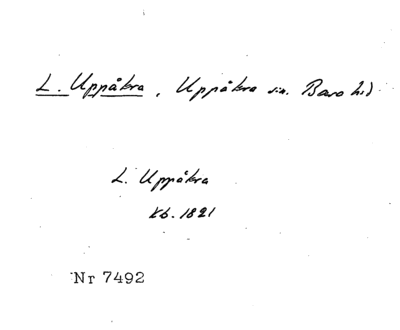 L. Uppåkra, Uppåkra sn. Bara hd
L. Uppåkra
Kb. 1821
Nr 7492